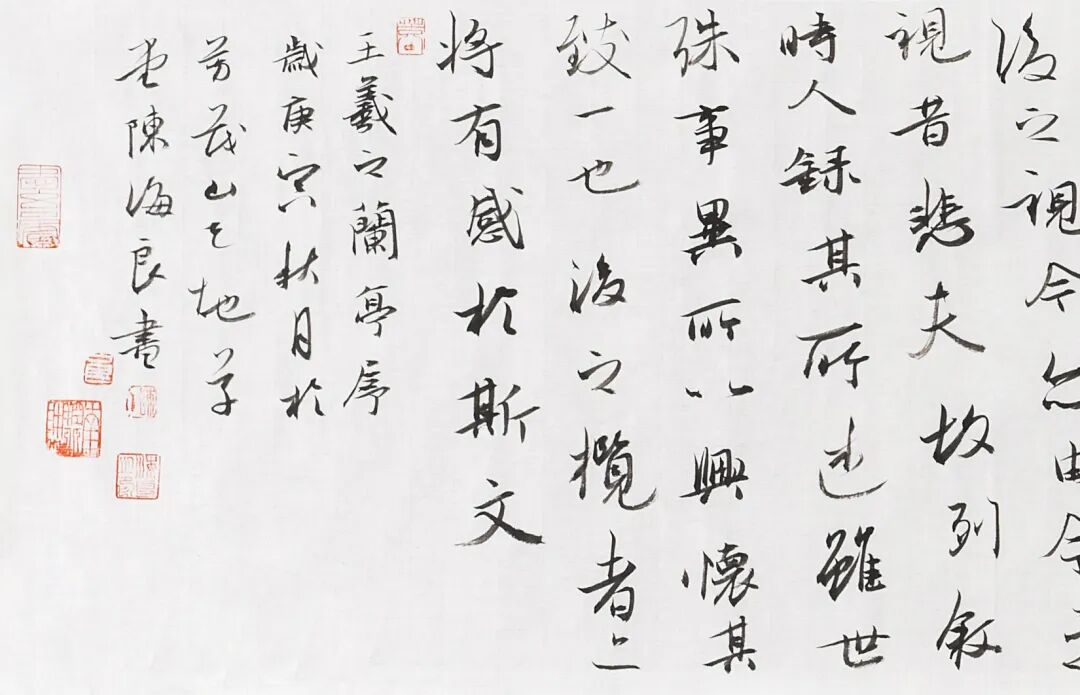 後之視今亦由今之
視昔悲夫故列敘
時人錄其所述雖世
殊事異所以興懷其
致一也後之攬者亦
将有感於斯文
王羲之蘭亭序
歲庚寅秋月於
芳茂山地草
堂陳海良書